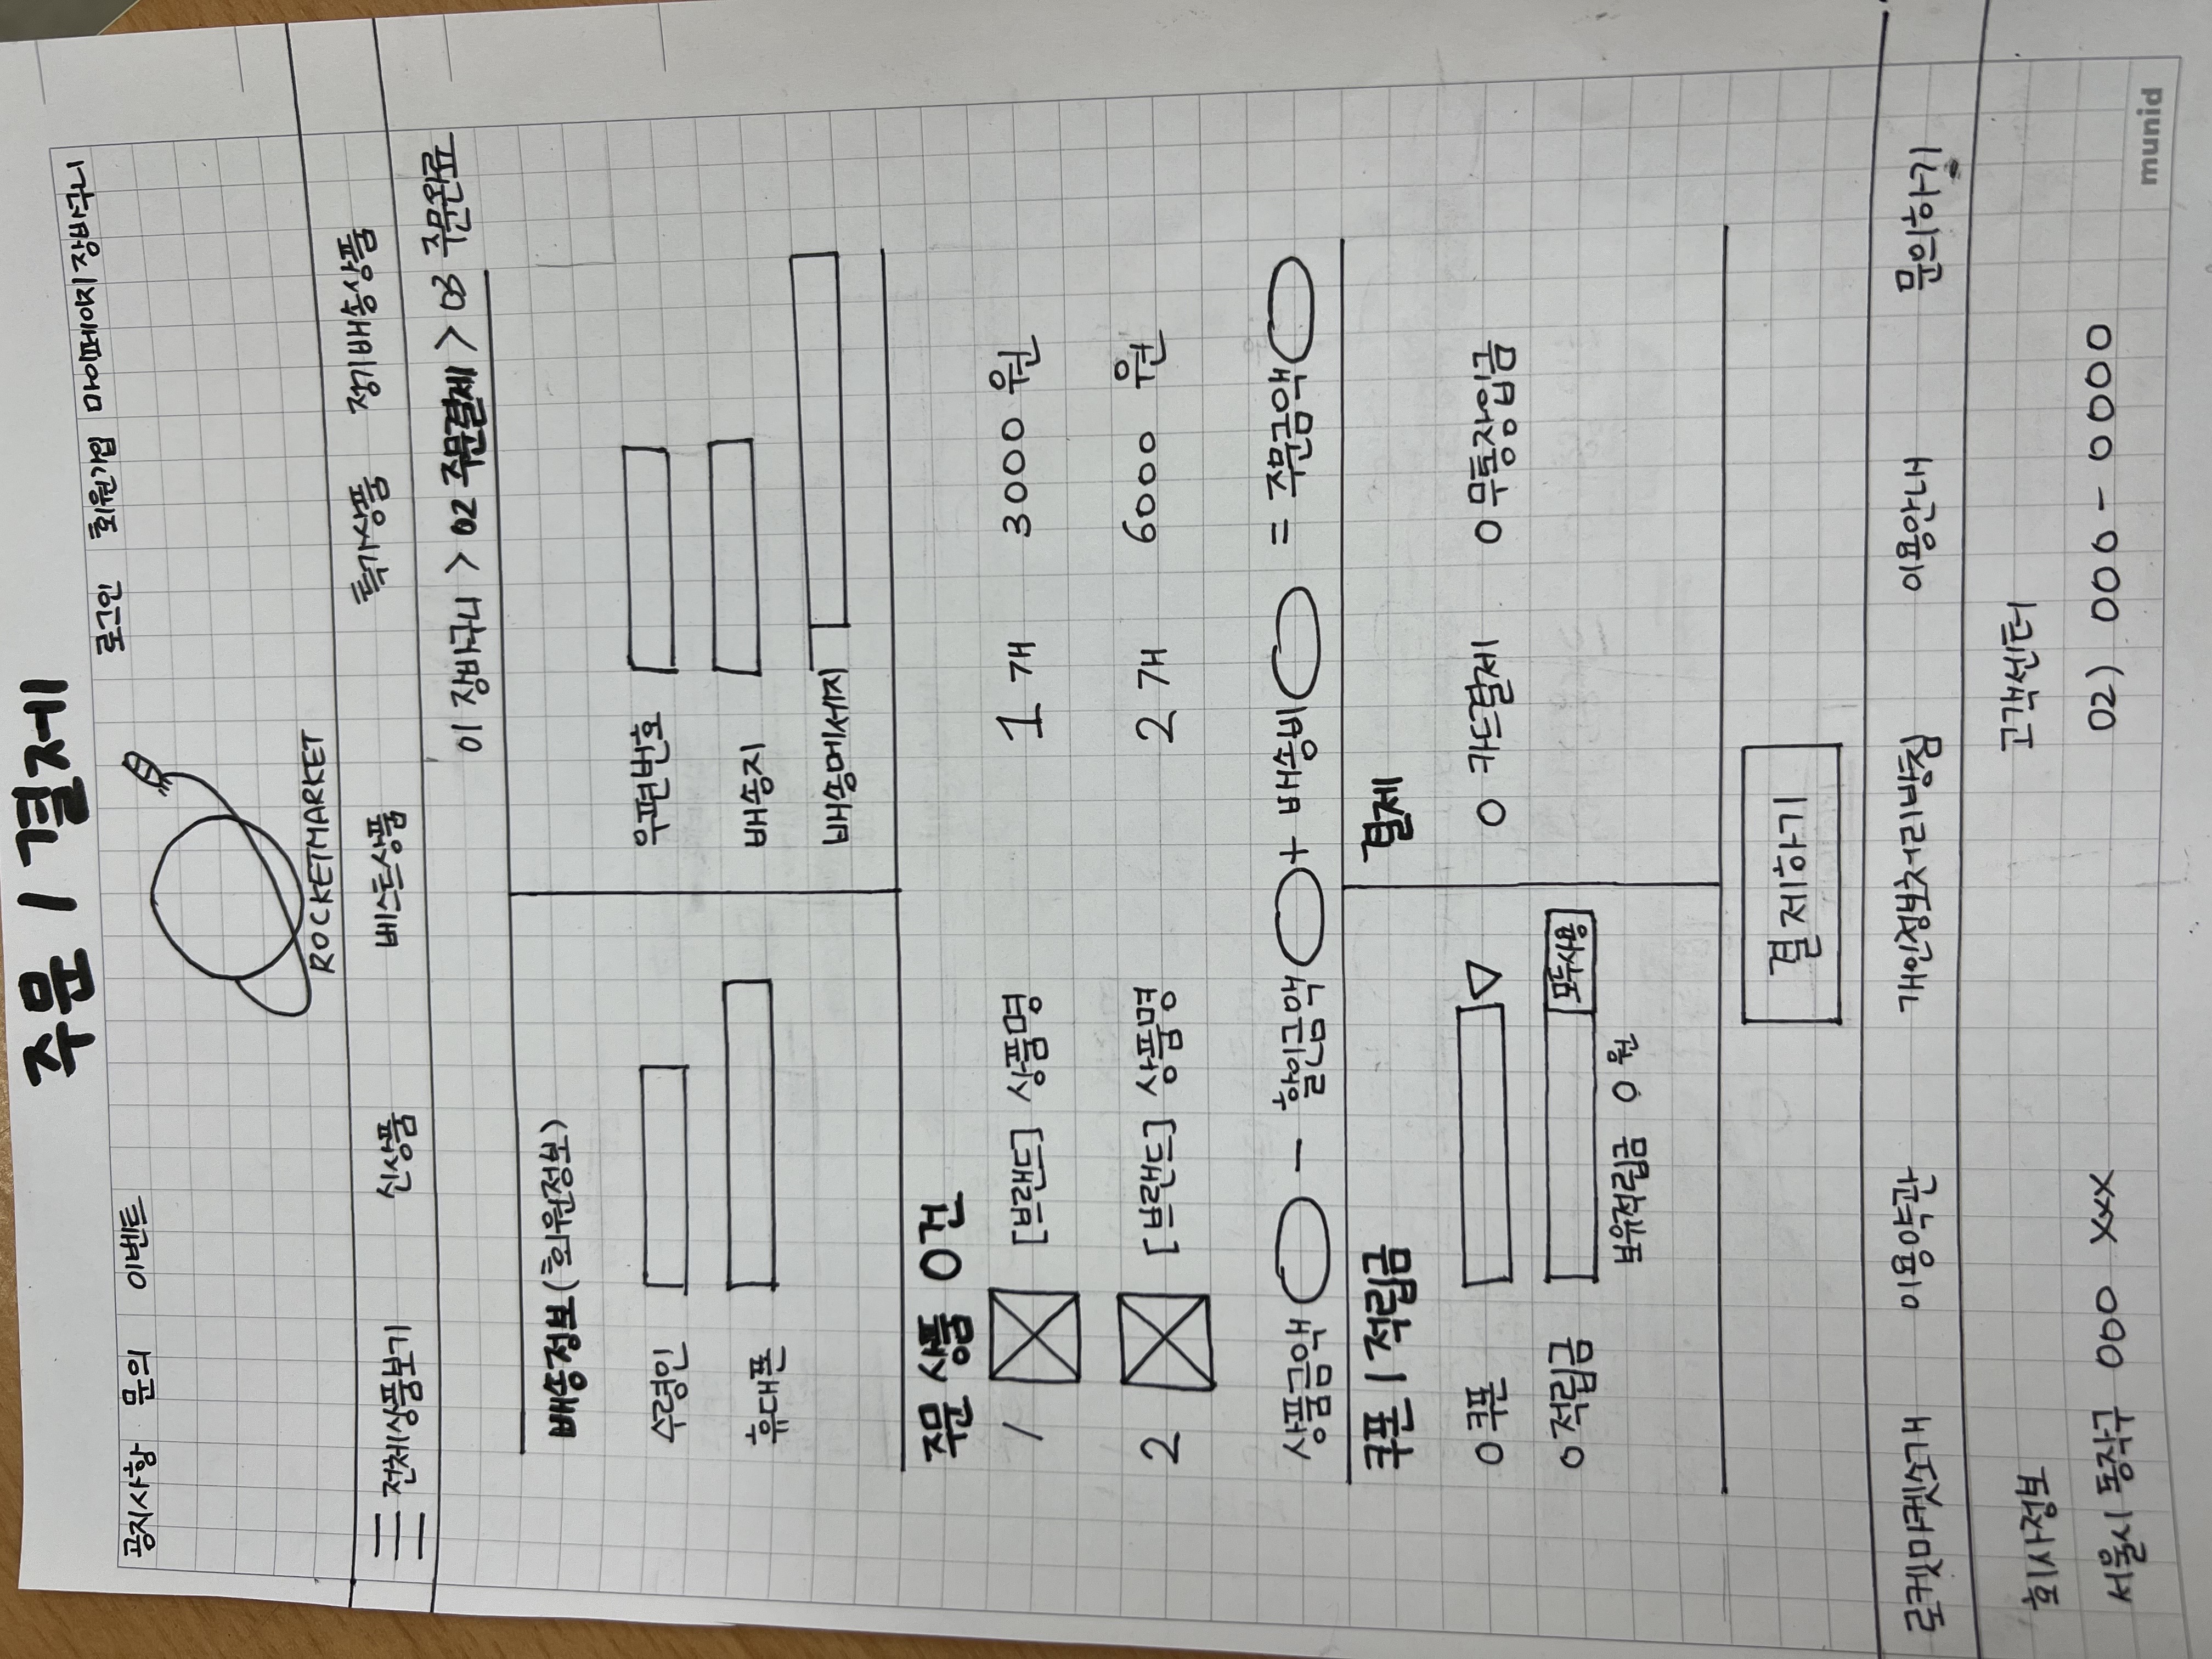 주문 / 결제
공지사항 문의 이벤트 로그인 회원가입 마이페이지 장바구니
ROCKETMARKET
전체상품보기 신상품 베스트상품 특가상품 정기배송상품
01 장바구니 > 02 주문결제 > 03 주문완료
배송정보(회원정보)
수령인 우편번호
휴대폰 배송지
배송메세지
주문 상품 0건
1 [브랜드] 상품명 1 개 3000 원
2 [브랜드] 상품명 2 개 6000 원
상품금액 - 할인금액 + 배송비 = 주문금액
쿠폰 / 적립금 결제
○ 쿠폰 ▽ ○ 카드결제 ○ 무통장입금
○ 적립금 모두사용
보유적립금 0 원
결제하기
로켓마켓소개 이용약관 개인정보처리방침 이용안내 문의하기
회사정보 고객센터
서울시 동작구 000 XXX 02) 000-0000
munid